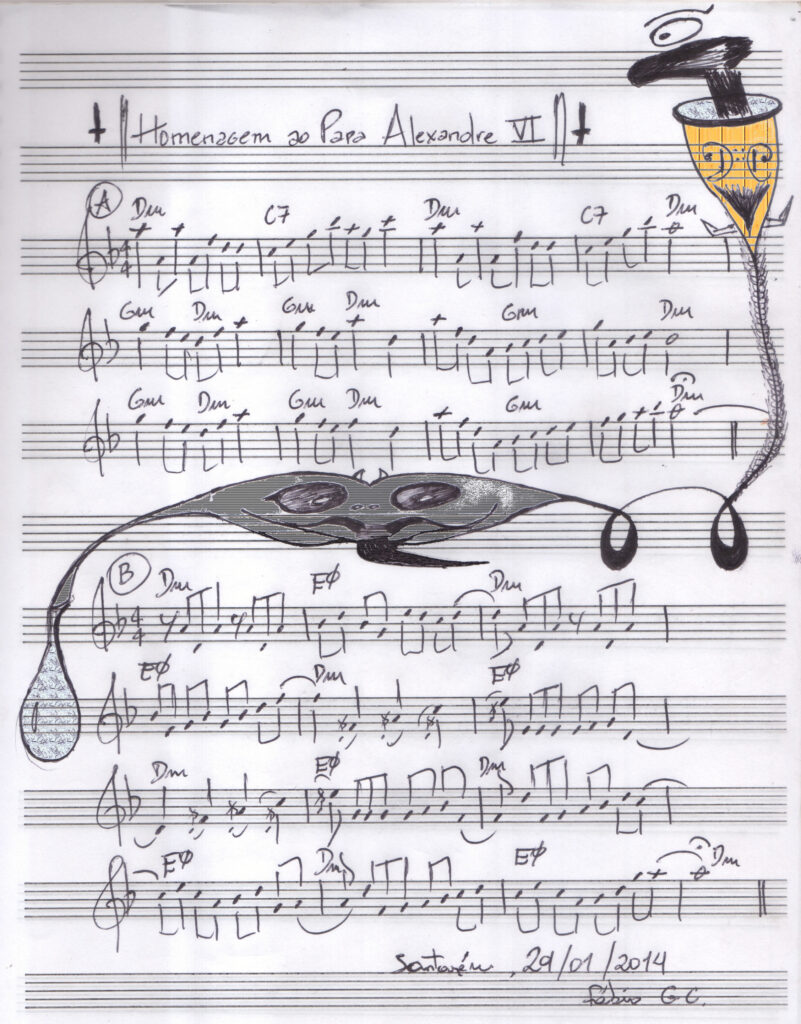 Homenagem ao Papa Alexandre VI
A
Dm C7 Dm C7 Dm
4 4
Gm Dm Gm Dm Gm Dm
Gm Dm Gm Dm Gm Dm
B
Dm EØ Dm
4 4
EØ Dm EØ
Dm EØ Dm
EØ Dm EØ Dm
Santarém, 29/01/2014
Fábio G C.